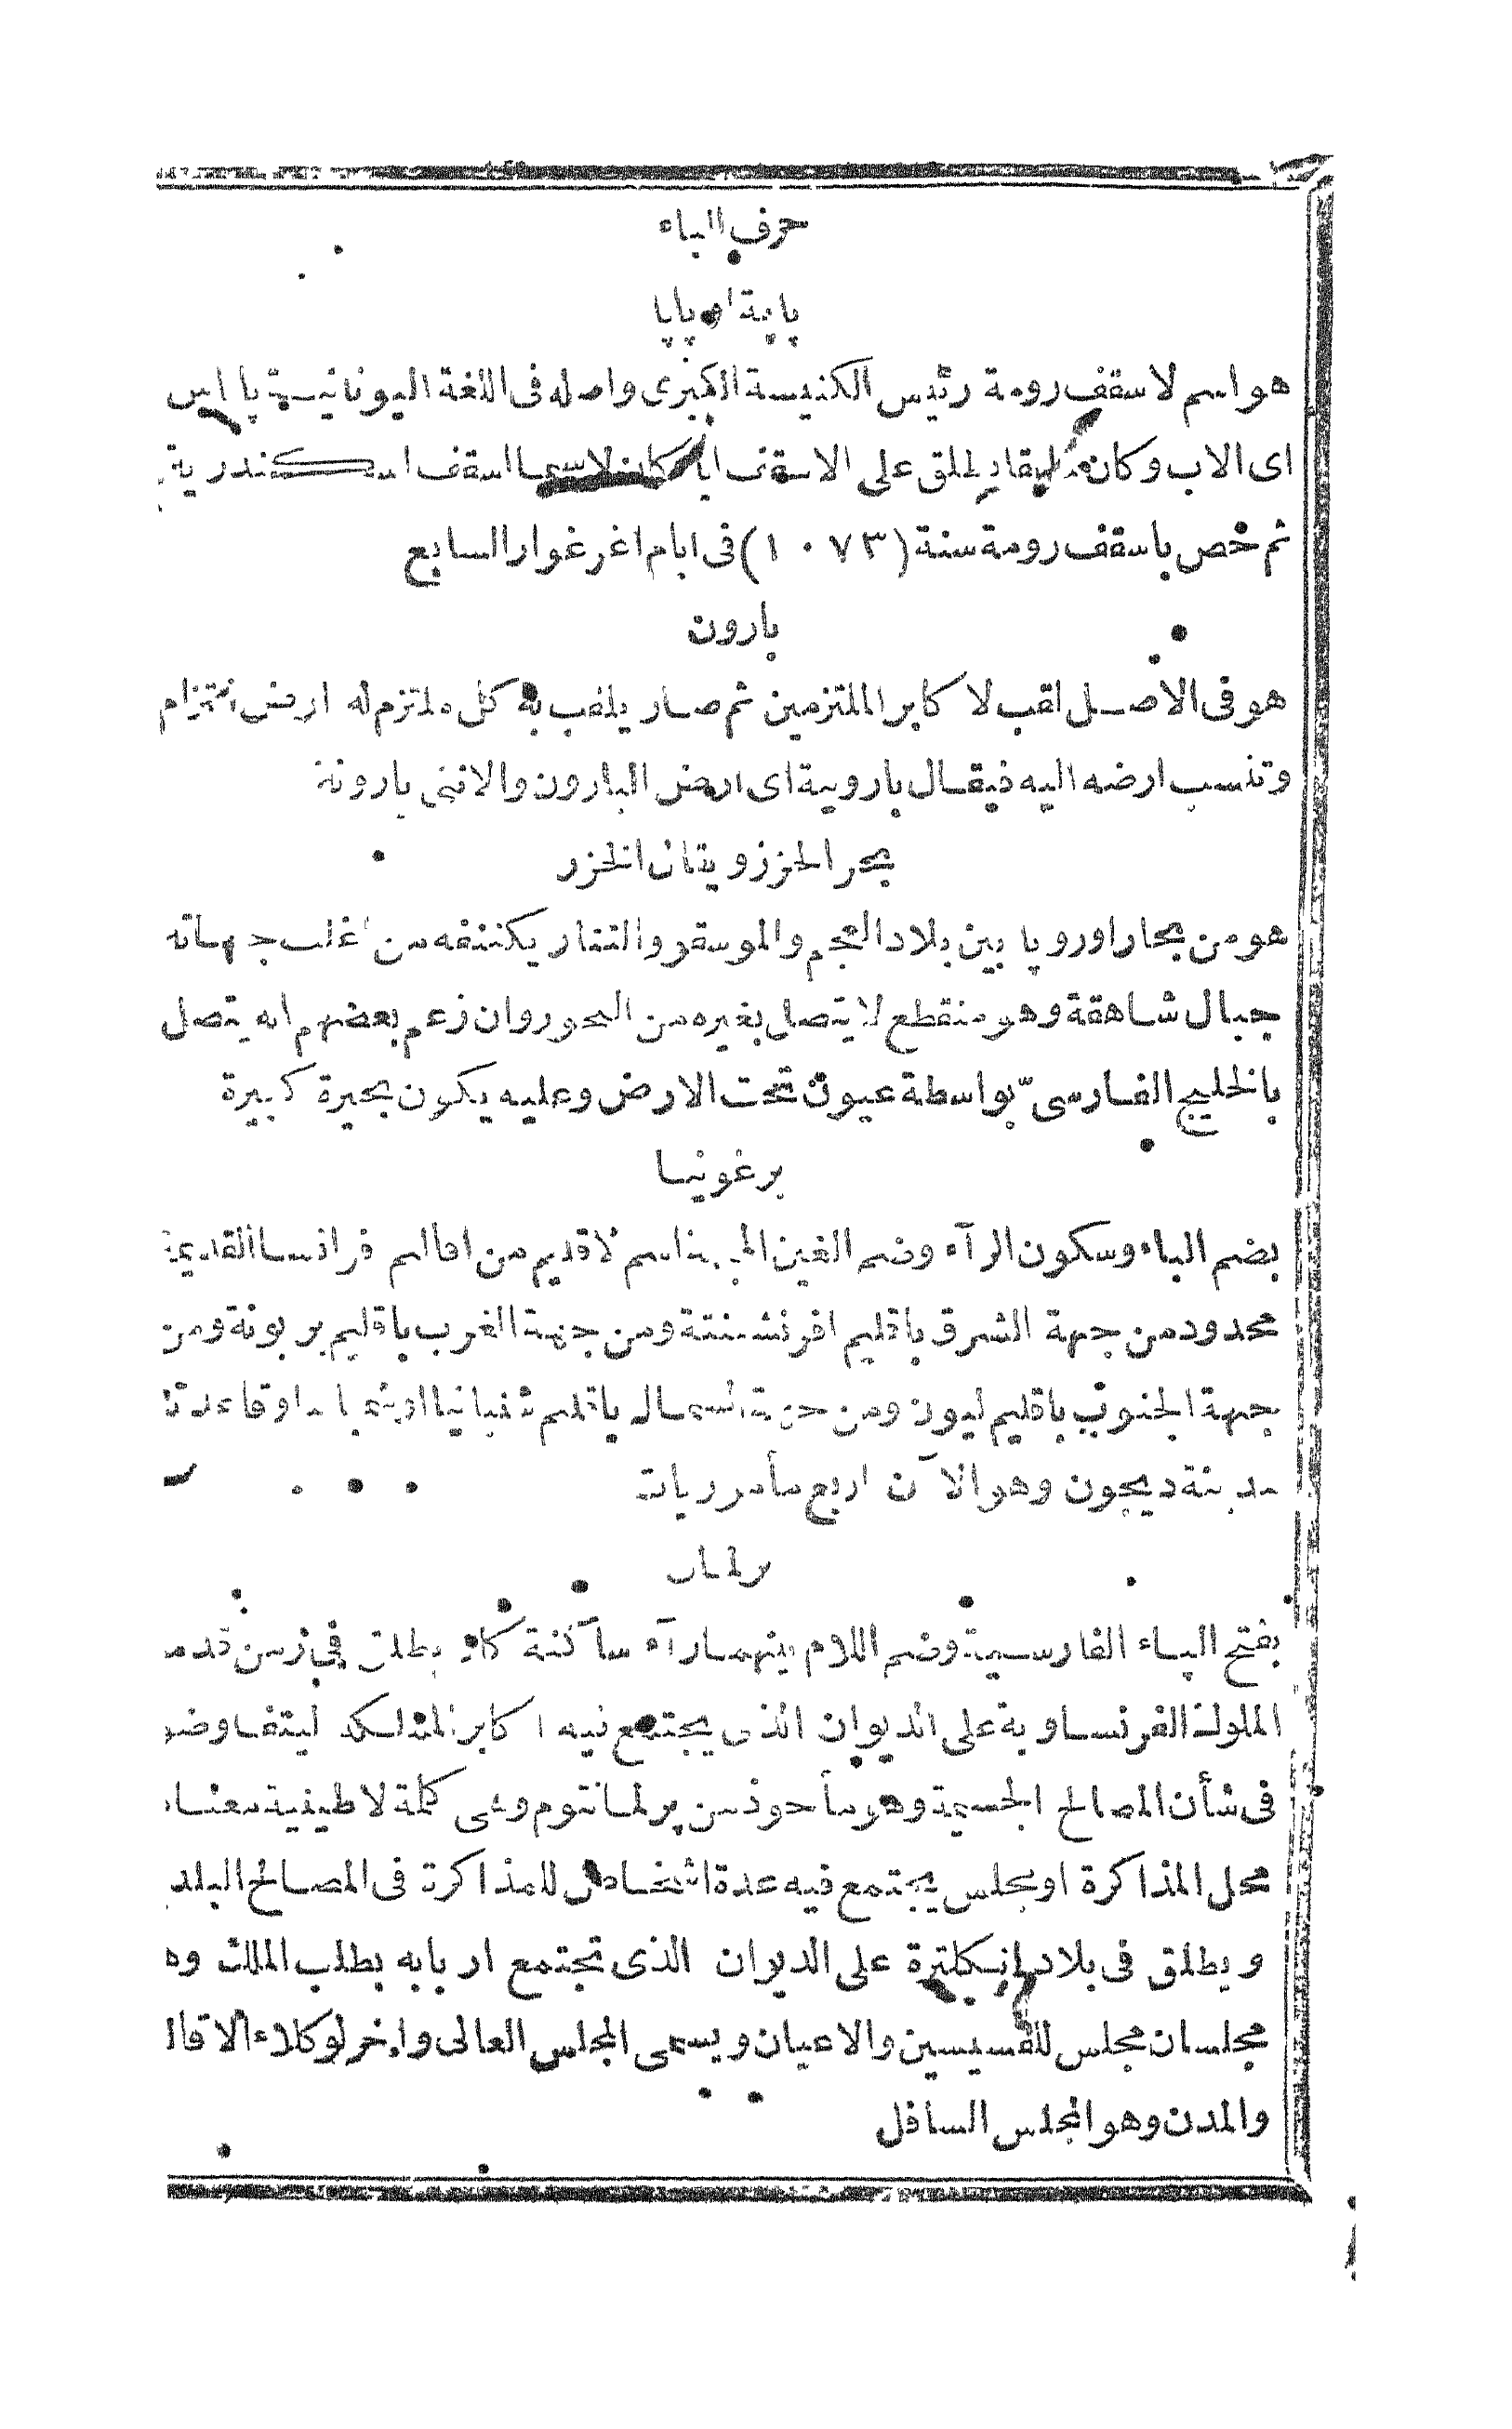 حرف الباء
پاپة او پاپا
هو اسم لاسقف رومة رئيس الكنيسة الكبرى واصله فى اللغة اليونانيــة پاپاس
اى الاب وكان سابقا يطلق على الاسقف ايا كان لاسيما اسقف اسكندرية
ثم خص باسقف رومة سنة (١٠٧٣) فى ايام اغرغوار السابع
بارون
هو فى الاصــل لقب لاكابر الملتزمين ثم صـار يلقب به كل ملتزم له ارض التزام
وتنسب ارضه اليه فيقـال بارونية اى ارض البارون والانثى بارونة
بحر الخزر ويقال الخزر
هو من بحار اوروپا بين بلاد العجم والموسقو والتتار يكتنفه من اغلب جهاته
جبال شـاهقة وهو منقطع لا يتصل بغيره من البحور وان زعم بعضهم انه يتصل
بالخليج الفـارسىّ بواسطة عيون تحت الارض وعليه يكون بحيرة كبيرة
برغونيـا
بضم الباء وسكون الرآء وضم الغين المعجمة اسم لاقليم من اقاليم فرانسـا القديمة
محدود من جهة الشرق باقليم افرنشقنتة ومن جهة الغرب باقليم بربونة ومن
جهة الجنوب باقليم ليون ومن جهة الشمـال باقليم شنپانيا وقاعدته
مدينة ديجون وهو الآن اربع مأموريات
برلمـان
بفتح الپـاء الفارسـية وضم اللام بينهمـا رآء ساكنة كان يطلق فى زمن قدمـا
الملوك الفرنسـاوية على الديوان الذى يجتمع فيه اكابر المملـكة ليتفـاوضوا
فى شأن المصالح الجسيمة وهو مأخوذ من پرلمـانتوم وهى كلمة لاطينية معنـاه
محل المذاكرة او مجلس يجتمع فيه عدة اشخـاص للمذاكرة فى المصـالح البلد
ويطلق فى بلاد انـكلترة على الديوان الذى تجتمع اربابه بطلب الملك وه
مجلسان مجلس للقسيسين والاعيان ويسمى المجلس العالى واخر لوكلاء الاقال
والمدن وهو المجلس السافل